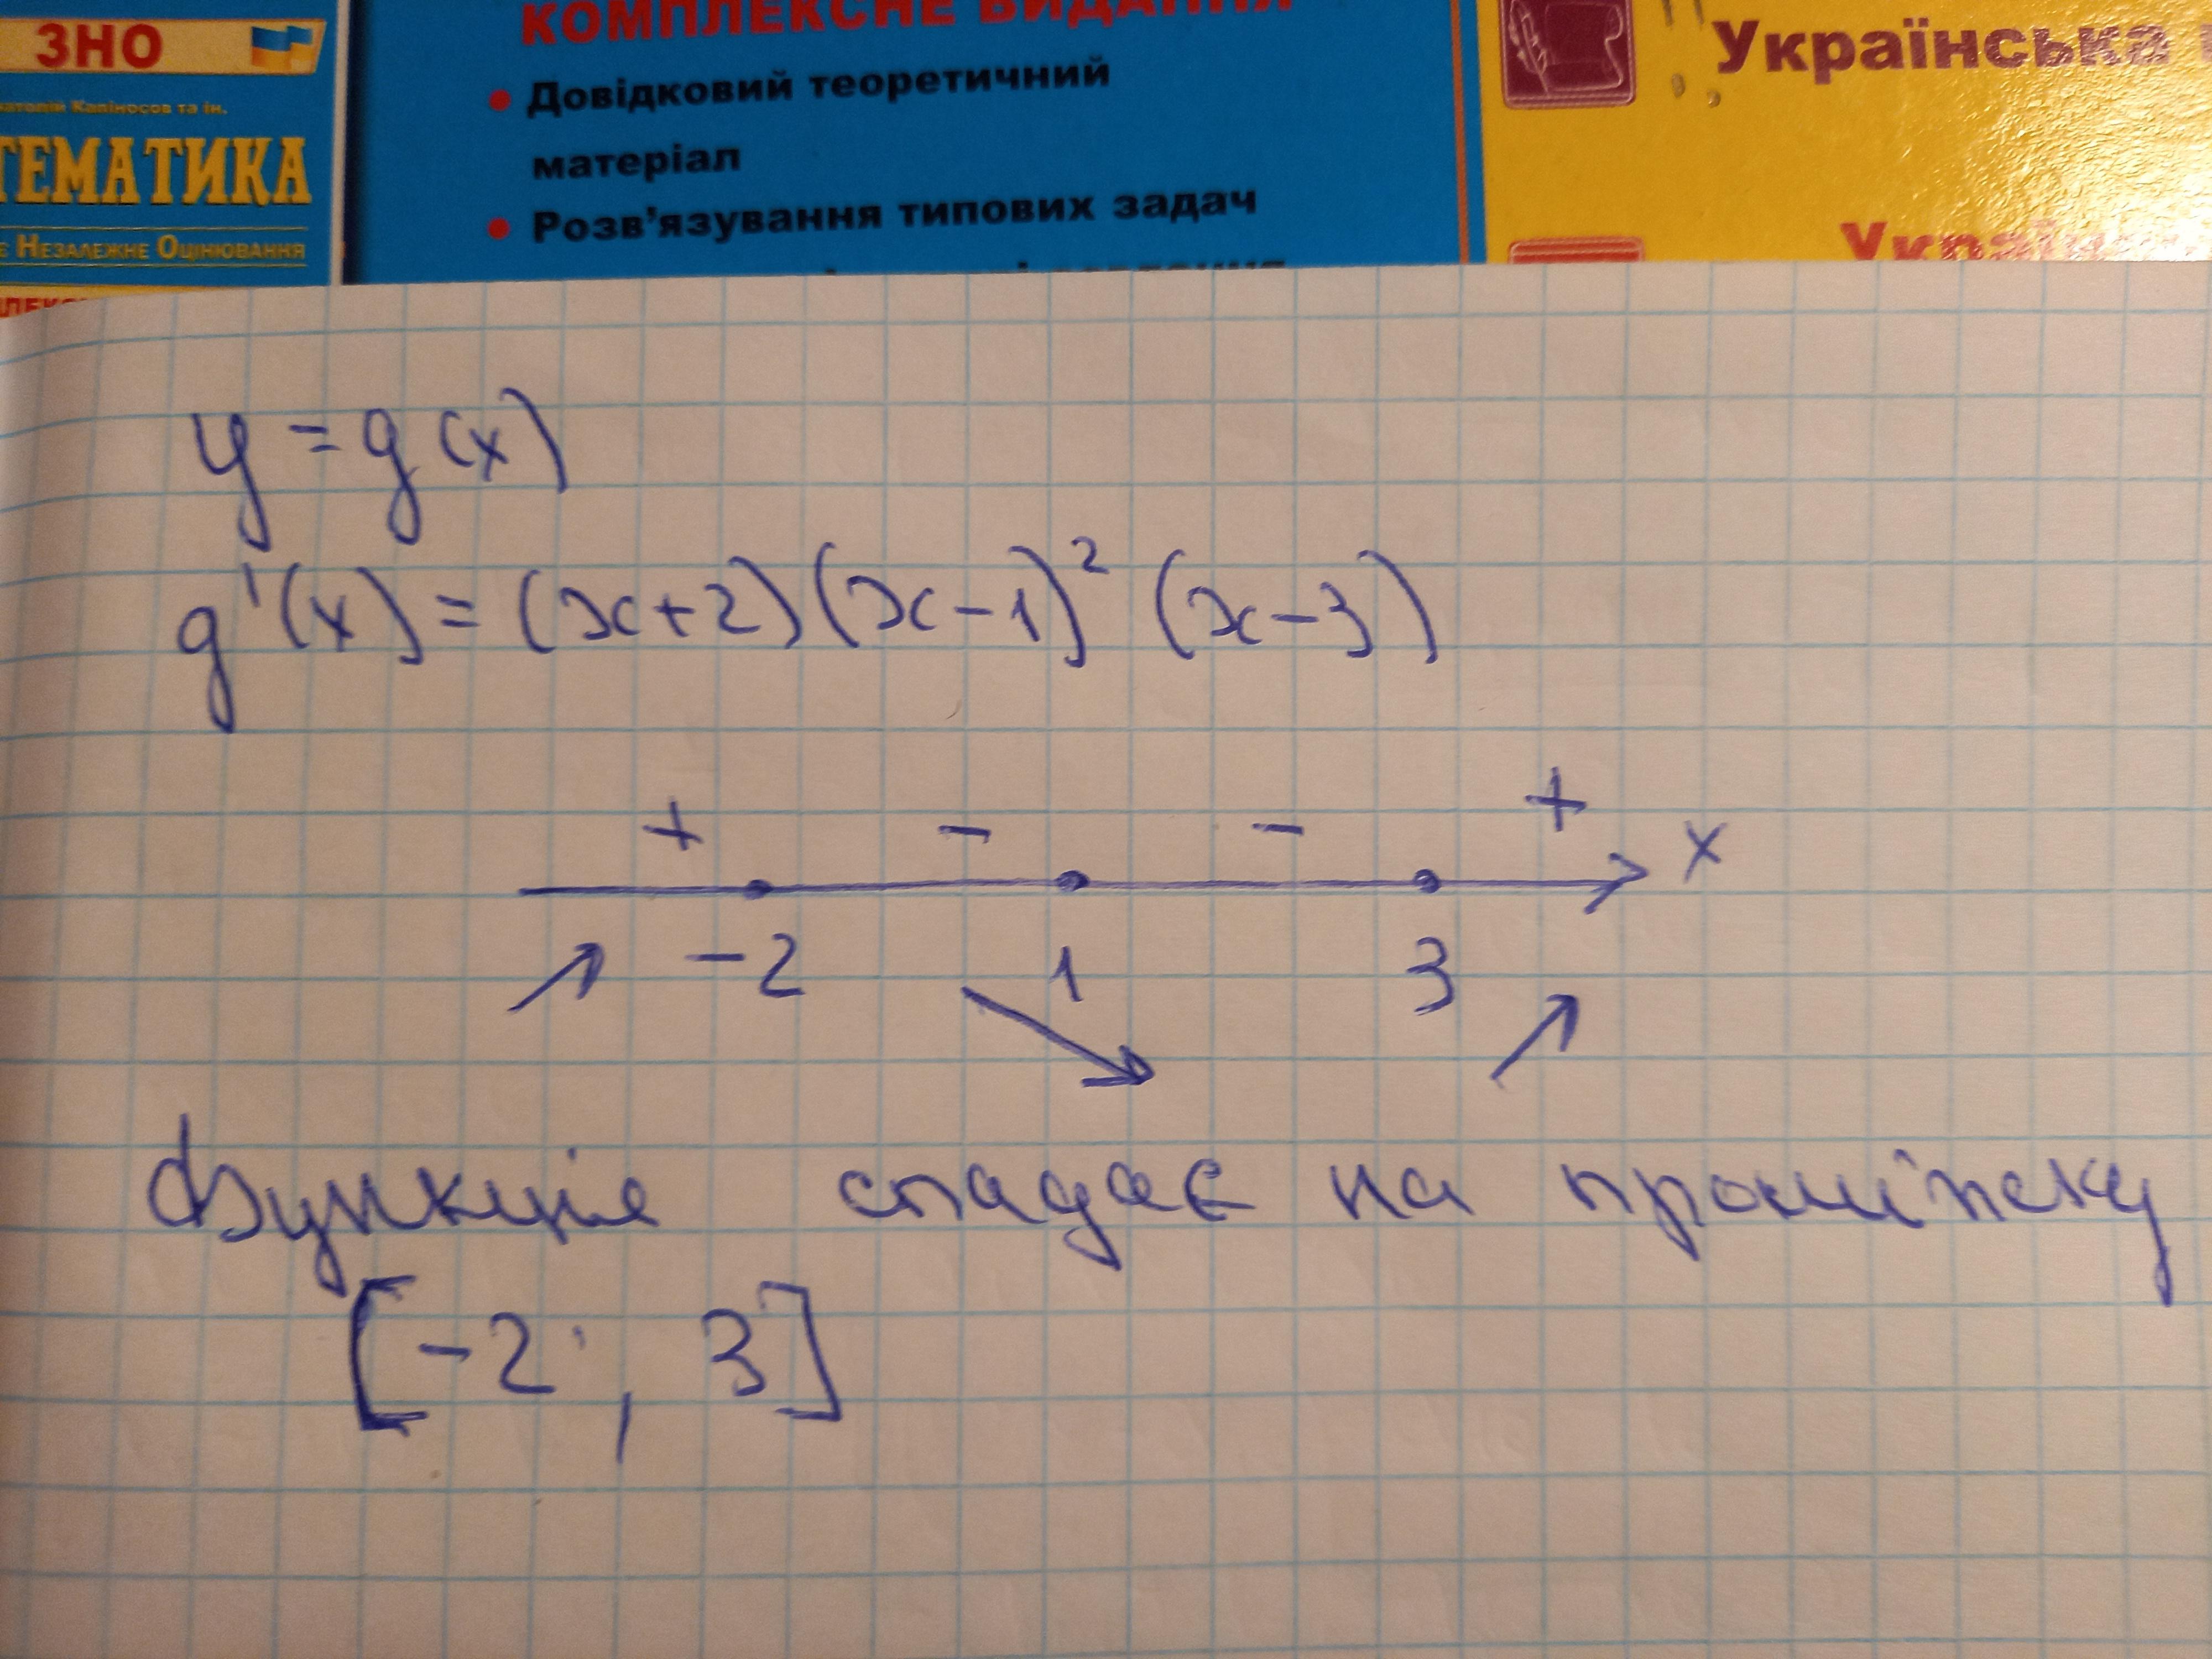 ЗНО
КОМПЛЕКСНЕ ВИДАННЯ
• Довідковий теоретичний
матеріал
• Розв'язування типових задач
Українська
Капіносов та ін.
ТЕМАТИКА
Незалежне Оцінювання
y = g(x)
g'(x) = (x+2)(x-1)² (x-3)
+ - - + x
-2 1 3
Функція спадає на проміжку
[-2; 3]